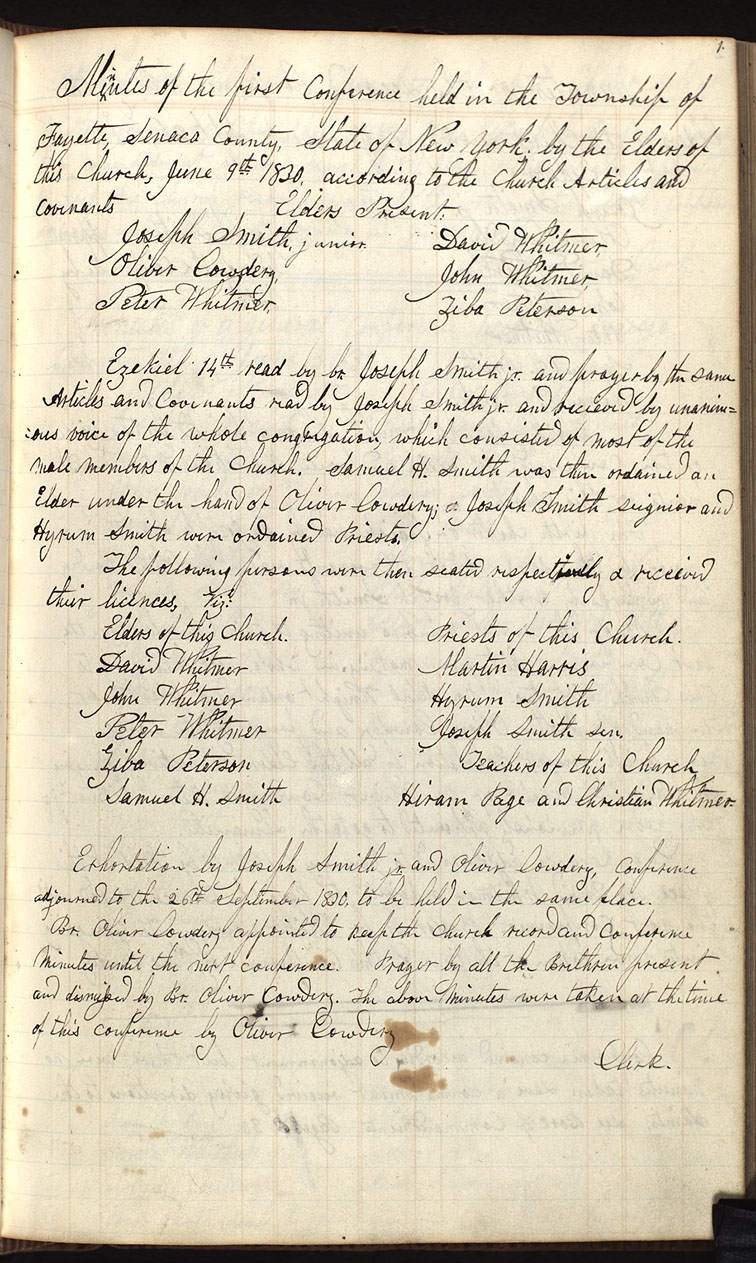 1.
Minutes of the first Conference held in the Township of
Fayette, Senaca County, State of New York, by the Elders of
this Church, June 9th 1830. according to the Church Articles and
Covenants Elders Present.
Joseph Smith, junior. David Whitmer,
Oliver Cowdery, John Whitmer,
Peter Whitmer, Ziba Peterson
Ezekiel 14th read by br. Joseph Smith jr. and prayer by the same
Articles and Covenants read by Joseph Smith jr. and recieved by unanim=
=ous voice of the whole congregation, which consisted of most of the
male members of the Church. Samuel H. Smith was then ordained an
Elder under the hand of Oliver Cowdery; & Joseph Smith seignior and
Hyrum Smith were ordained Priests.
The following persons were then seated respectively & received
their licences, Viz:
Elders of this Church. Priests of this Church.
David Whitmer Martin Harris
John Whitmer Hyrum Smith
Peter Whitmer Joseph Smith sen.
Ziba Peterson Teachers of this Church
Samuel H. Smith Hiram Page and Christian Whitmer.
Exhortation by Joseph Smith jr. and Oliver Cowdery, Conference
adjourned to the 26th September 1830, to be held in the same place.
Br. Oliver Cowdery appointed to keep the Church record and Conference
minutes until the next conference. Prayer by all the Brethren present
and dismissed by Br. Oliver Cowdery. The above minutes were taken at the time
of this conference by Oliver Cowdery
Clerk.